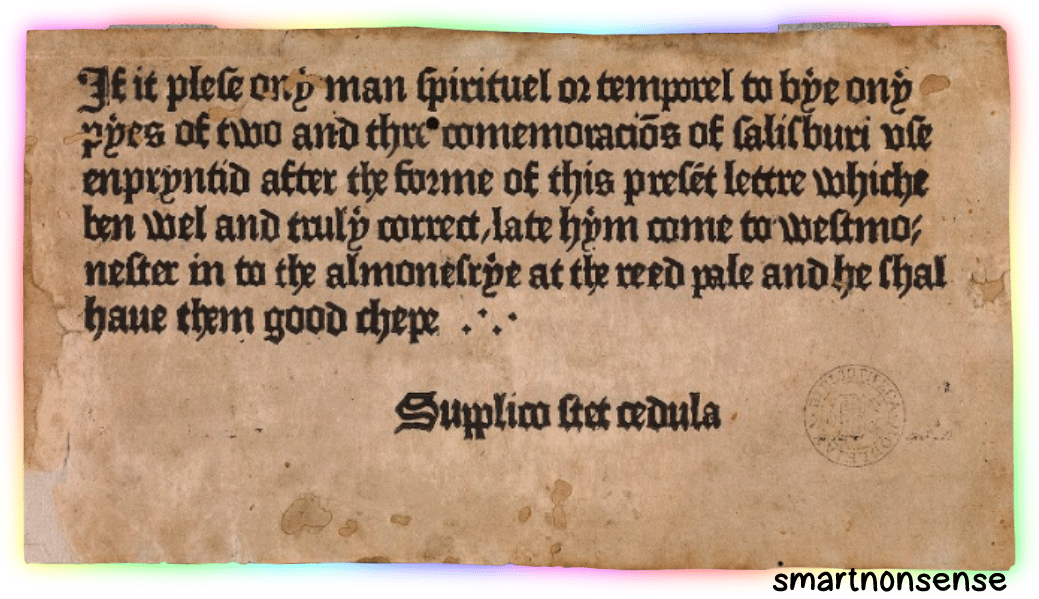 If it plese ony man spirituel or temporel to bye ony
pyes of two and thre comemoraciõs of salisburi vse
enpryntid after the forme of this presẽt lettre whiche
ben wel and truly correct, late hym come to westmo⸗
nester in to the almonesrye at the reed pale and he shal
haue them good chepe .·.·
Supplico stet cedula
BIBLIOTHECA BODLEIANA
smartnonsense